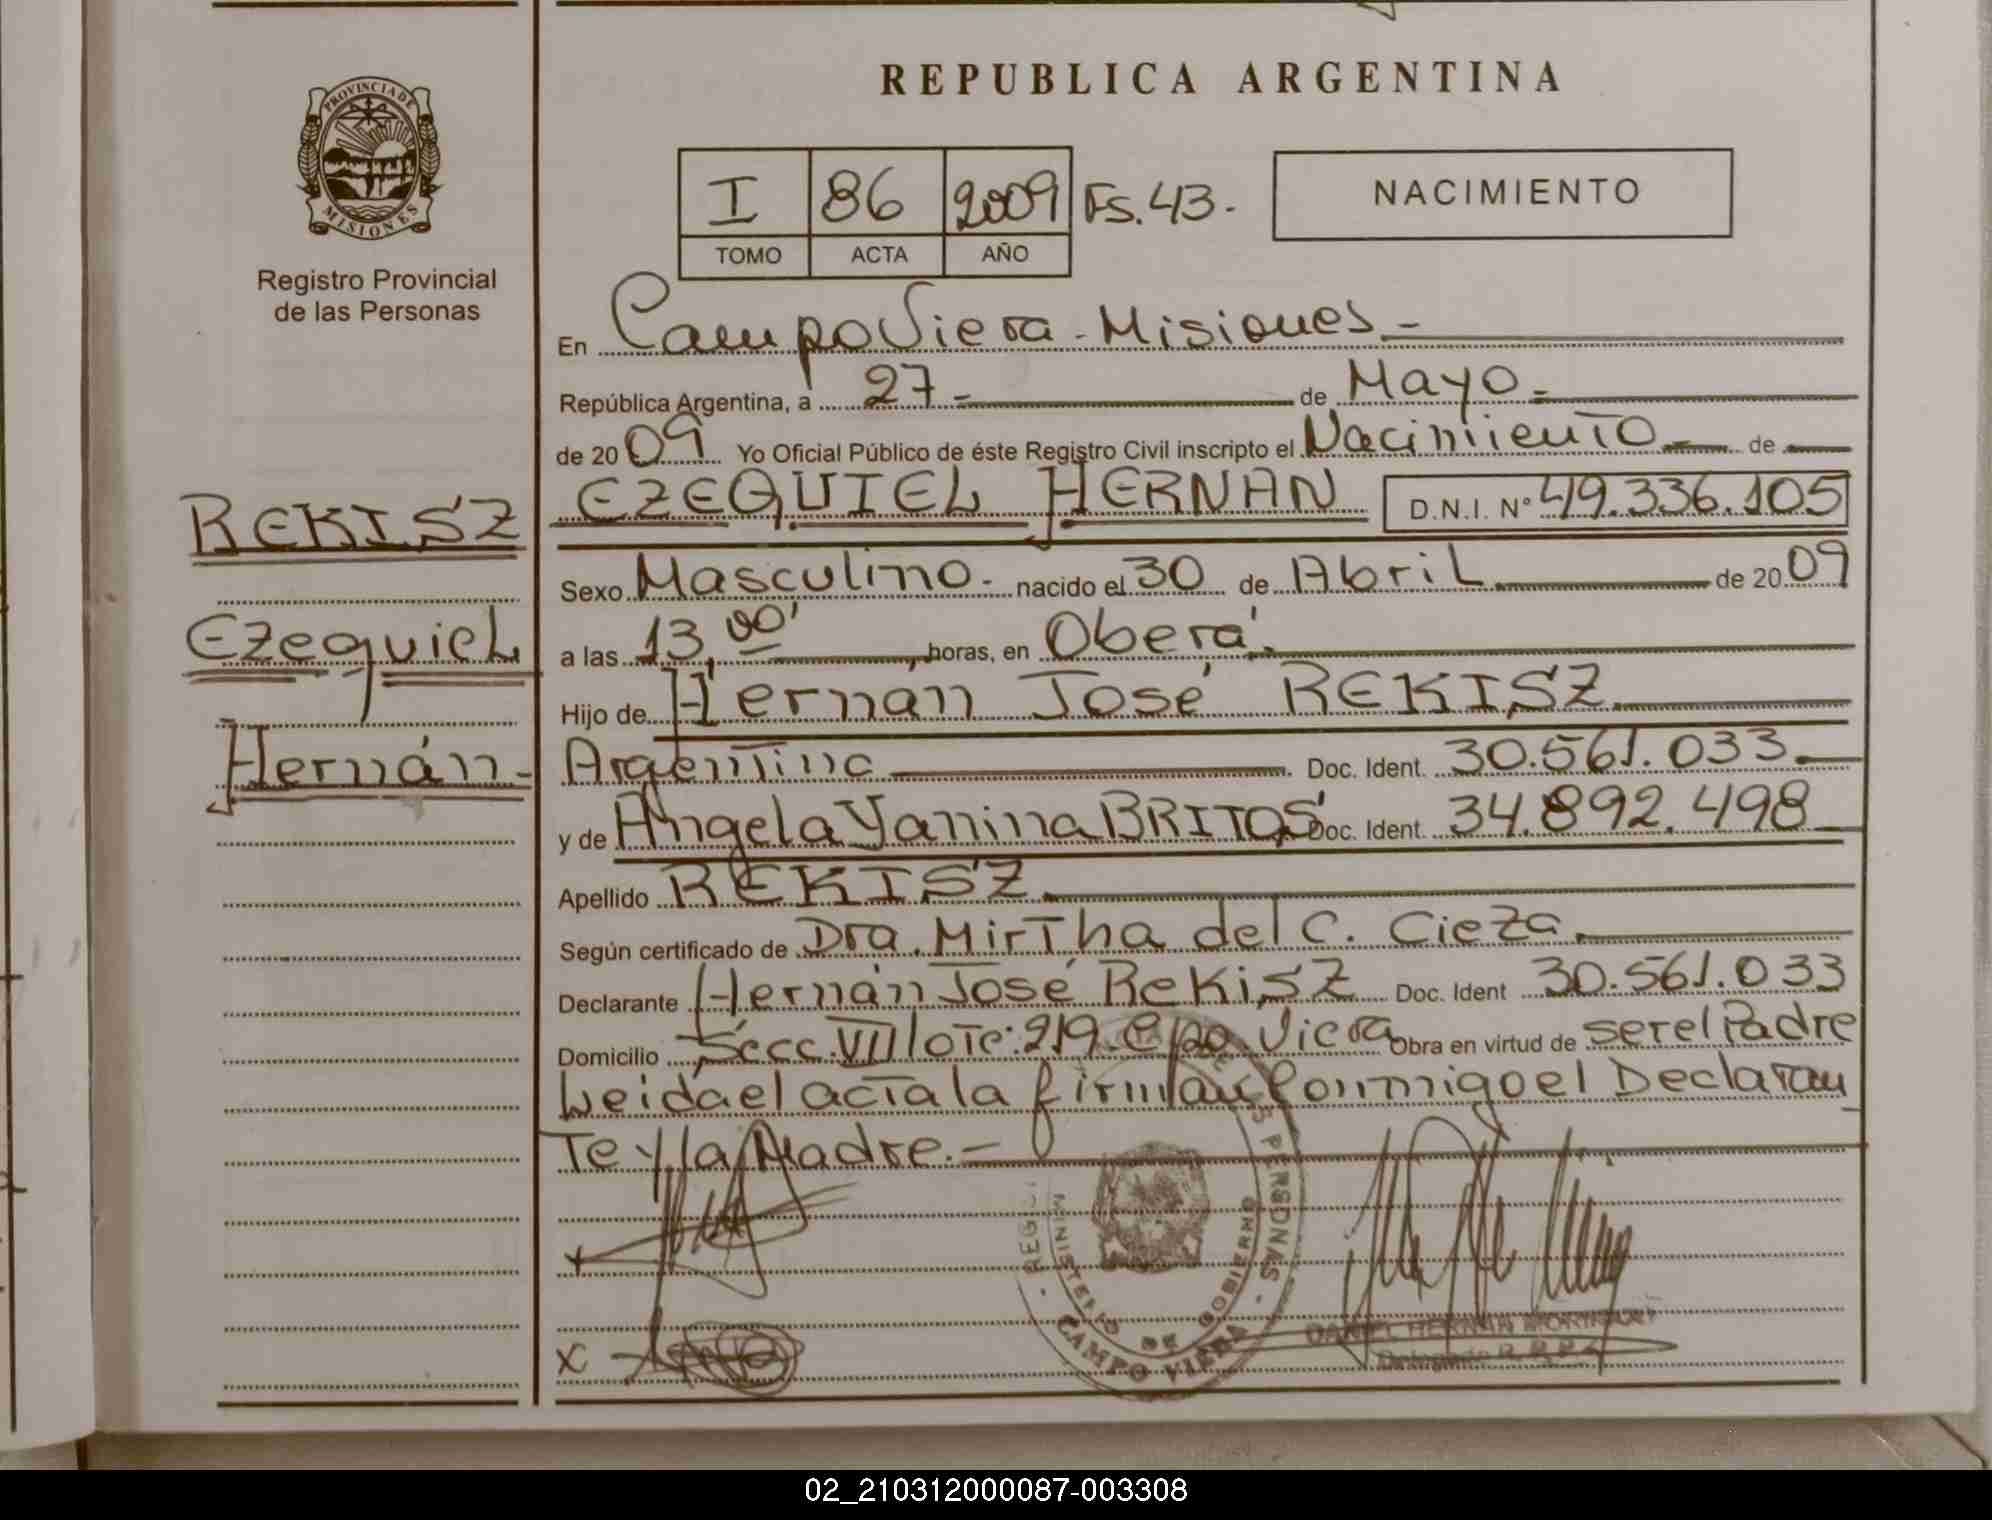 PROVINCIA DE
MISIONES
Registro Provincial
de las Personas
REKISZ
Ezequiel
Hernán-
REPUBLICA ARGENTINA
I 86 2009 Fs.43.-
TOMO ACTA AÑO
NACIMIENTO
En Campo Viera - Misiones -
República Argentina, a 27- de Mayo.-
de 2009 Yo Oficial Público de éste Registro Civil inscripto el Nacimiento - de
EZEQUIEL HERNAN D.N.I. N° 49.336.105
Sexo Masculino.- nacido el 30 de Abril de 2009
a las 13,00' horas, en Oberá.
Hijo de Hernán José REKISZ
Argentino Doc. Ident. 30.561.033
y de Angela Yanina BRITOS Doc. Ident. 34.892.498
Apellido REKISZ
Según certificado de Dra. Mirtha del C. Cieza
Declarante Hernán José Rekisz Doc. Ident 30.561.033
Domicilio Secc. VII lote: 219. Cpo. Viera Obra en virtud de ser el Padre
Leida el acta la firman Conmigo el Declaran
Te y la Madre.-
PERSONAS
MINISTERIO DE GOBIERNO
CAMPO VIERA
x
DANIEL HERNAN
Delegado R.P.P.
02_210312000087-003308